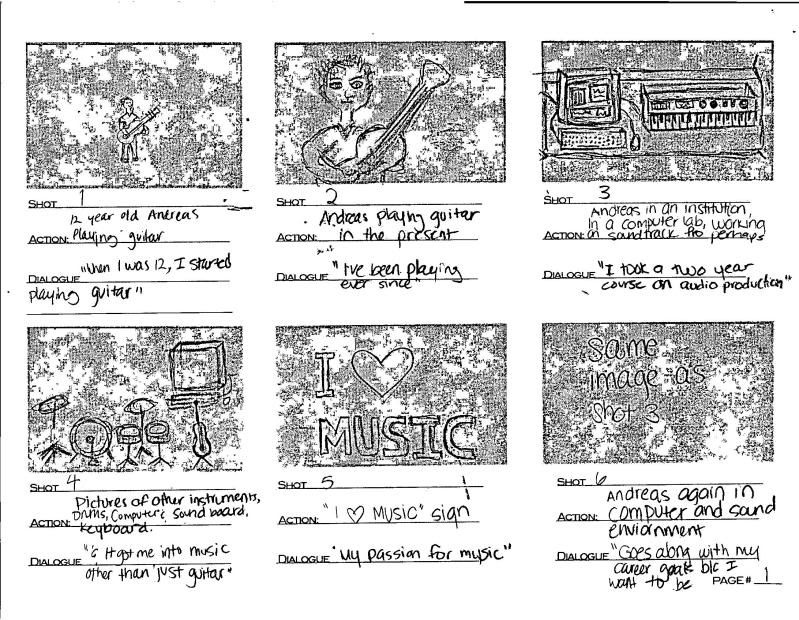 SHOT 1
12 year old Andreas
ACTION: Playing guitar
DIALOGUE "When I was 12, I started
playing guitar"
SHOT 2
Andreas playing guitar
ACTION: in the present
DIALOGUE "I've been playing
ever since"
SHOT 3
Andreas in an institution,
In a computer lab, working
ACTION: on soundtrack perhaps
DIALOGUE "I took a two year
course on audio production"
SHOT 4
Pictures of other instruments,
Drums, Computer & Sound board,
ACTION: Keyboard.
DIALOGUE "& It got me into music
other than just guitar"
I ♡
MUSIC
SHOT 5
ACTION: "I ♡ MUSIC" sign
DIALOGUE "My passion for music"
Same
image as
Shot 3
SHOT 6
Andreas again in
ACTION: computer and sound
enviornment
DIALOGUE "Goes along with my
career goals b/c I
want to be
PAGE# 1